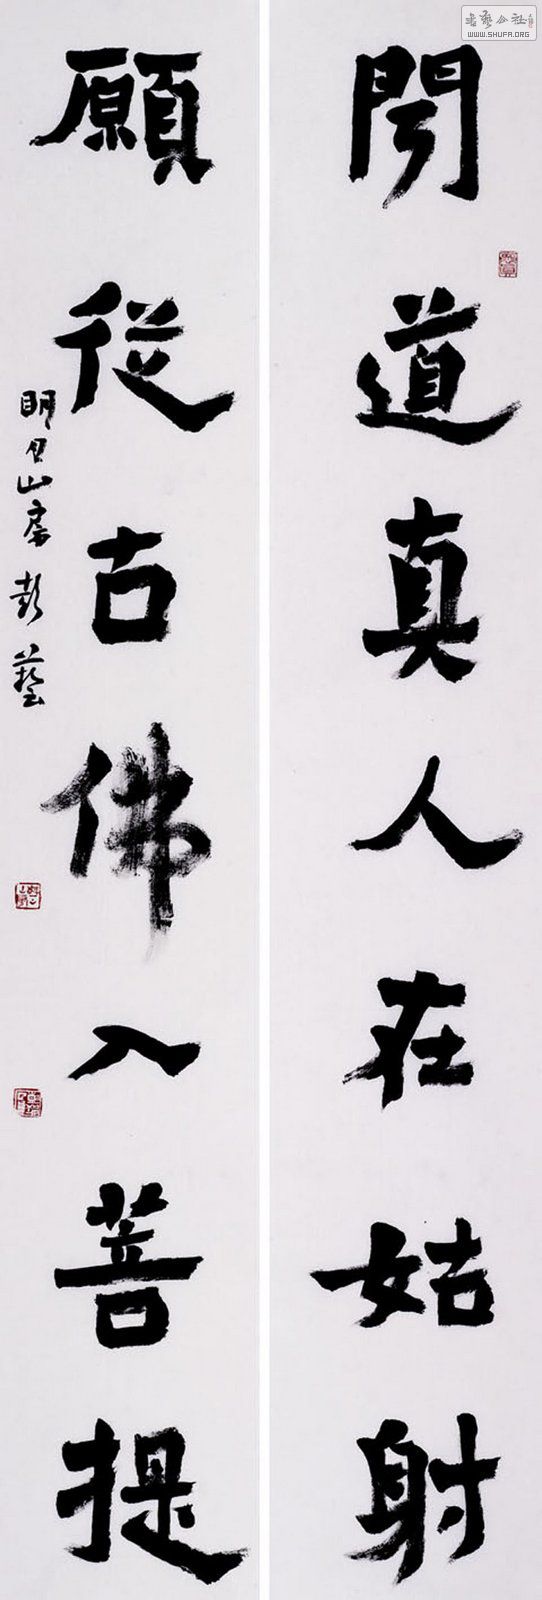 書藝公社
WWW.SHUFA.ORG
聞道真人在姑射
願從古佛入菩提
明月山房 彭藝